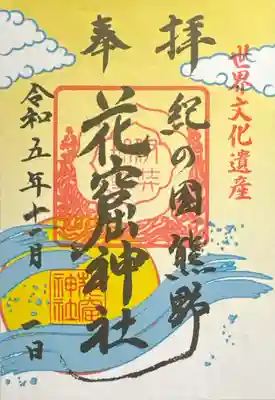 世界文化遺産
奉拝
紀の國熊野
花窟神社
令和五年十一月一日
花窟
神社